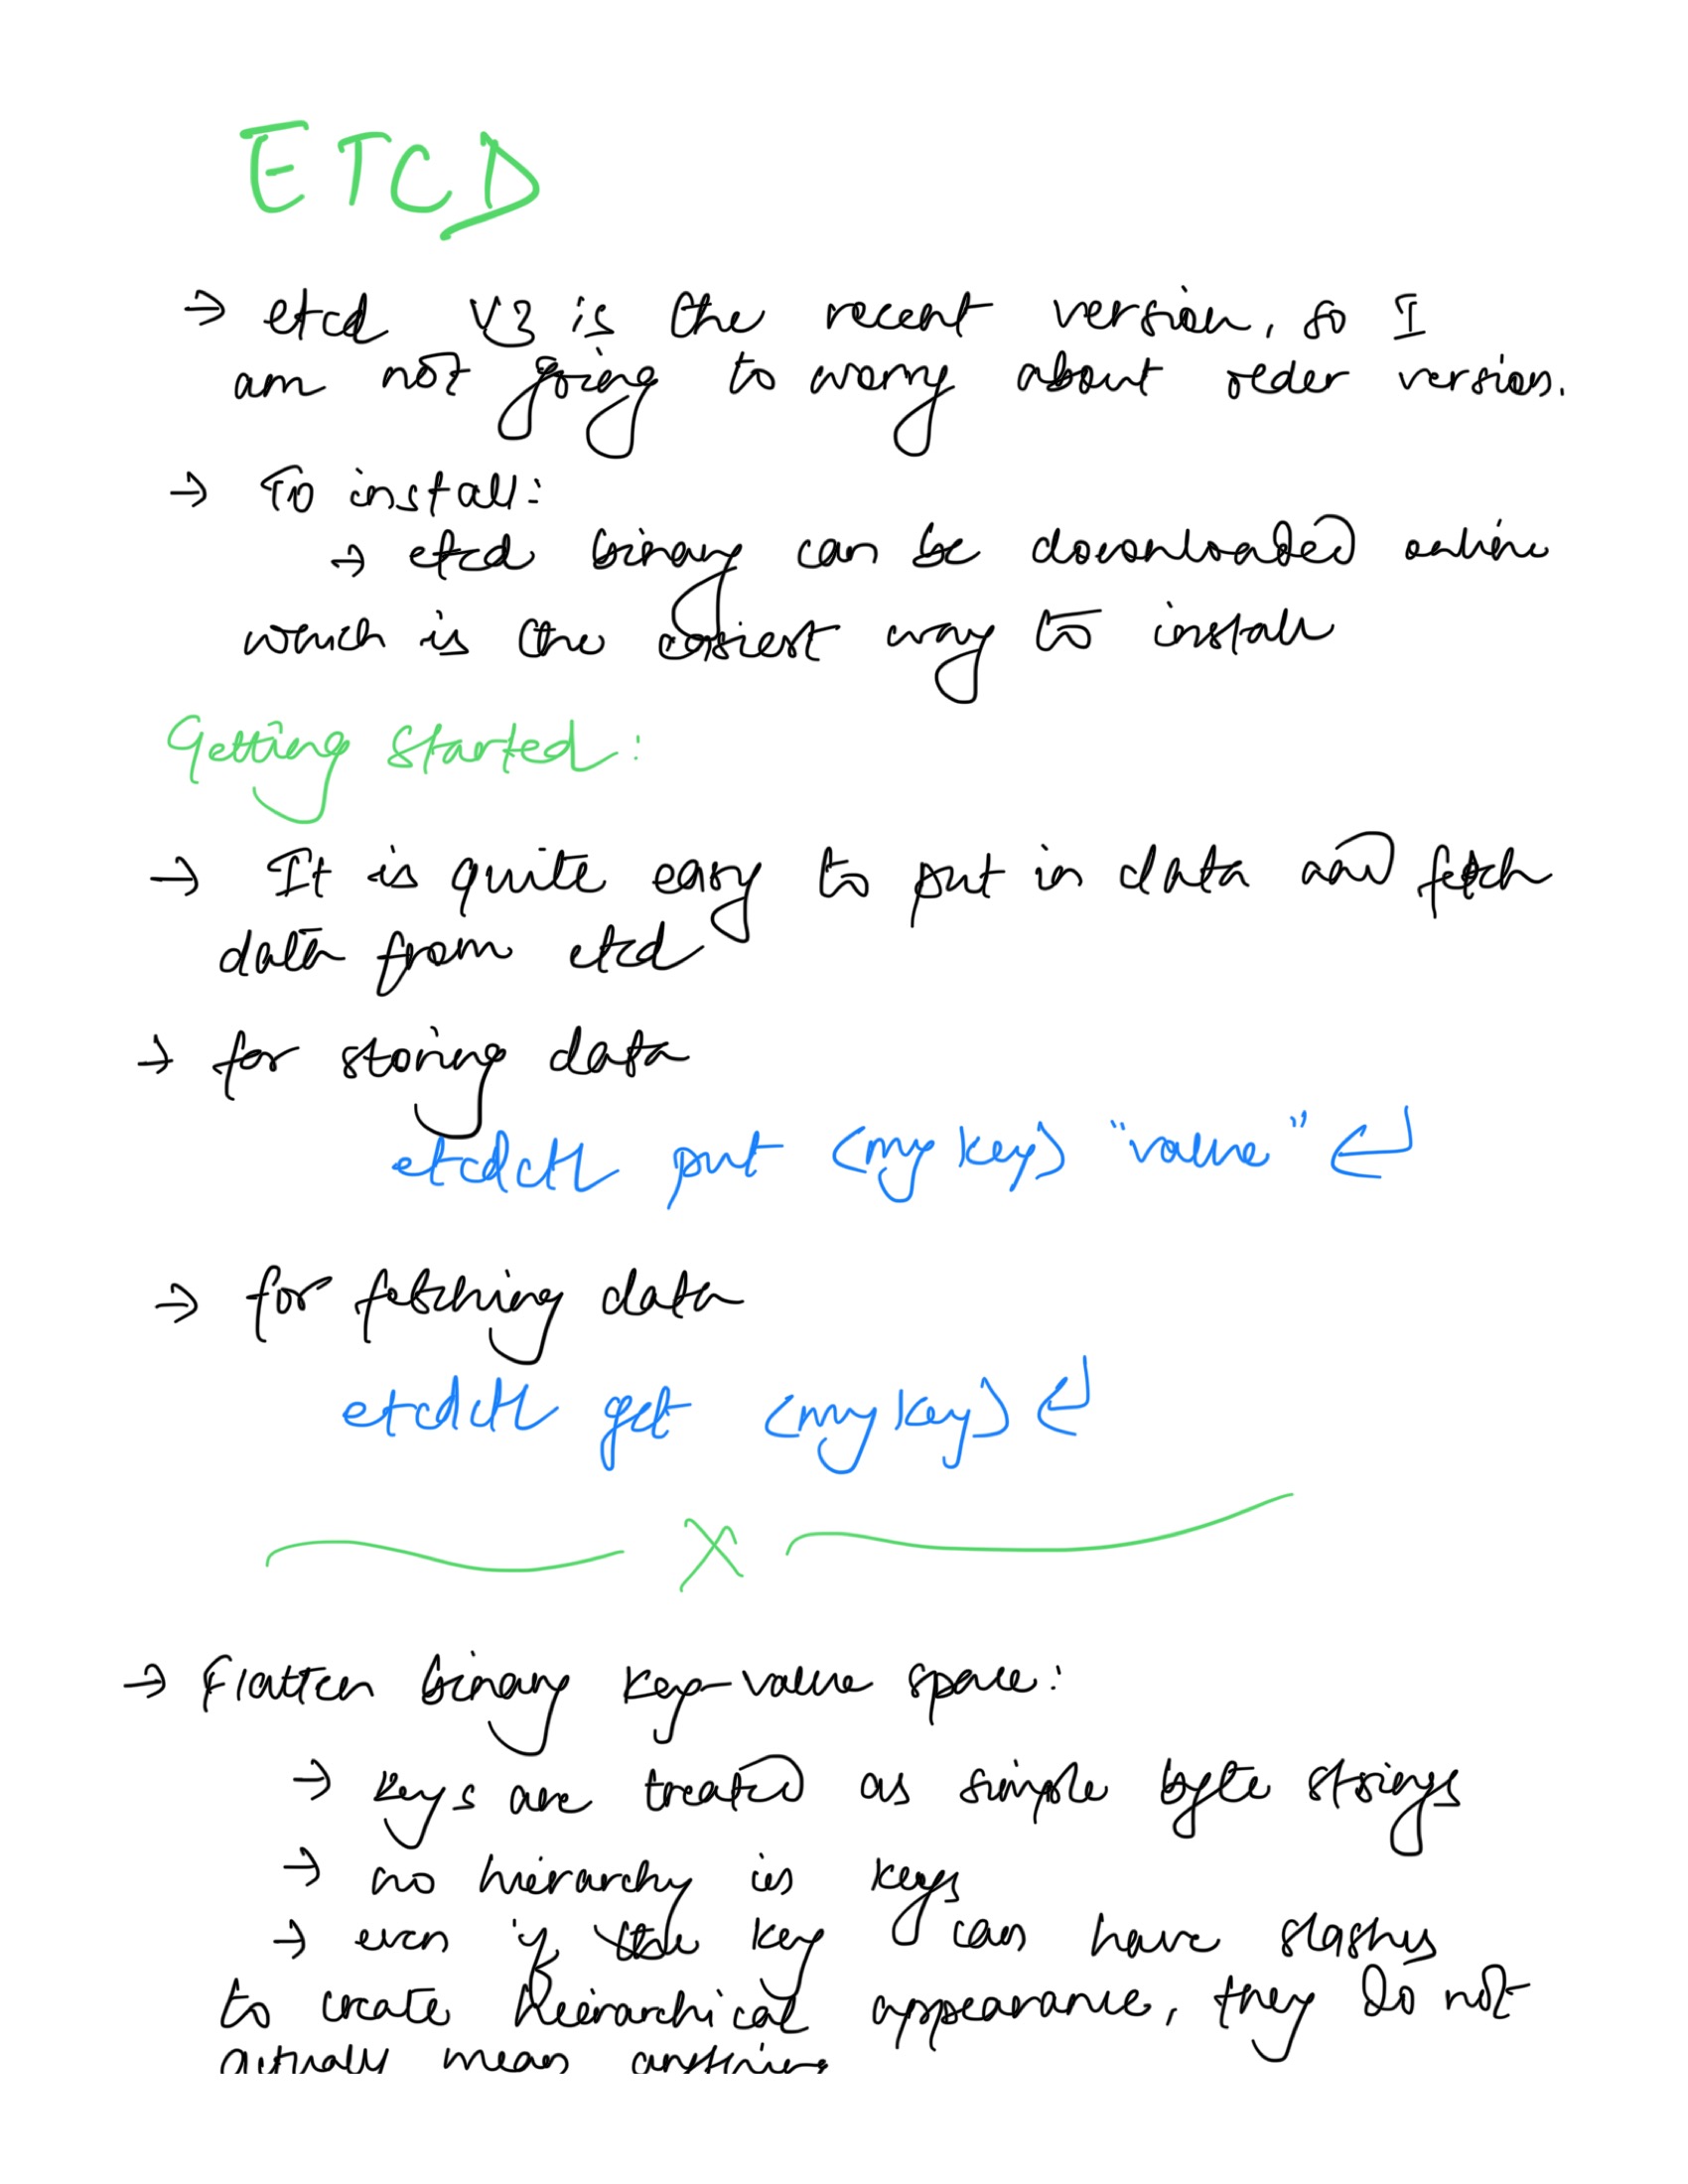 ETCD
→ etcd v3 is the recent version, so I
am not going to worry about older version.
→ To install:
→ etcd binary can be downloaded online
which is the easiest way to install
Getting started:
→ It is quite easy to put in data and fetch
data from etcd
→ for storing data
etcdctl put <mykey> "value" ↵
→ for fetching data
etcdctl get <mykey> ↵
X
→ Flatten binary key-value space:
→ keys are treated as simple byte strings
→ no hierarchy in keys
→ even if the key can have slashes
to create heirarchical appearance, they do not
actually mean anything